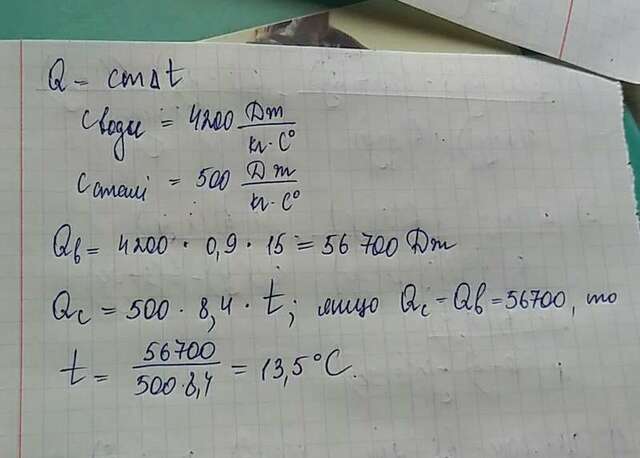 Q = cmΔt
Cводи = 4200 Дж/кг·С°
Cсталі = 500 Дж/кг·С°
Qв = 4200 · 0,9 · 15 = 56 700 Дж
Qс = 500 · 8,4 · t; якщо Qс = Qв = 56700, то
t = 56700/500·8,4 = 13,5°C.